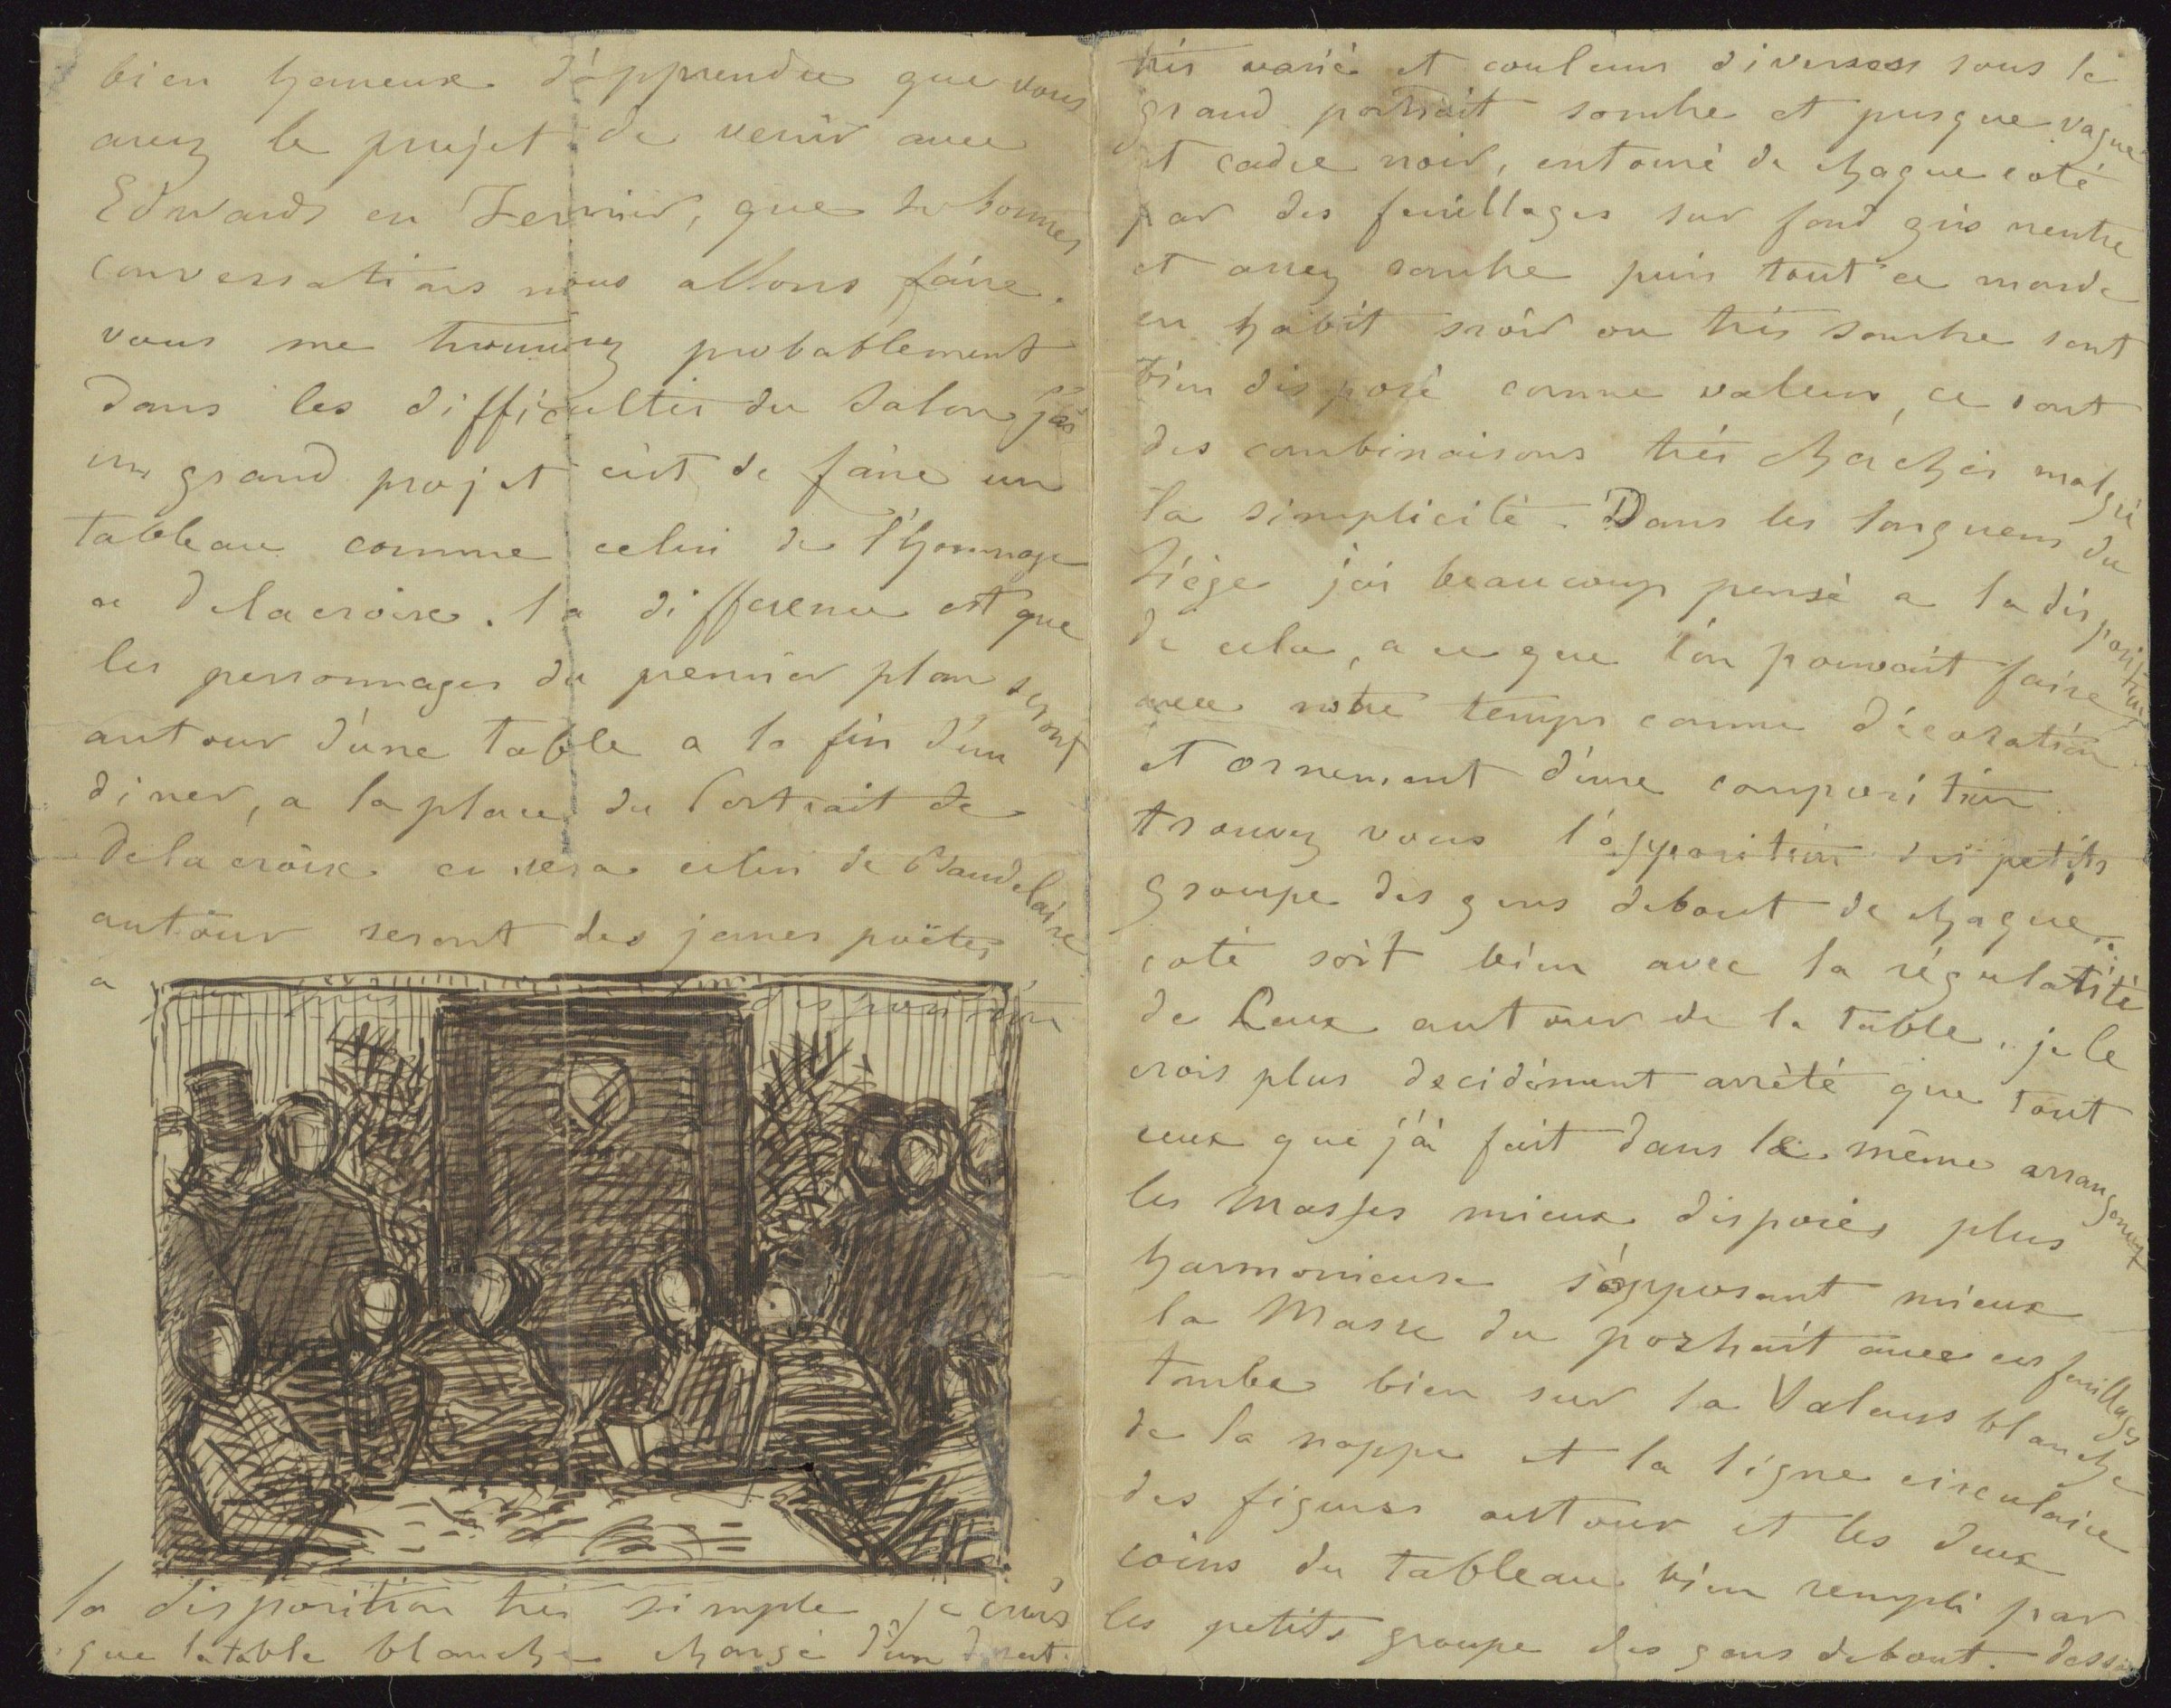 bien hereux d'apprendre que vous
avez le projet de venir avec
Edwards en Fevrier, que de bonnes
conversations nous allons faire.
vous me trouverez probablement
dans les difficultés du Salon j'ai
un grand projet c'est de faire un
tableau comme celui de l'hommage
a Delacroix. la difference est que
les personnages du premier plan seront
autour d'une table a la fin d'un
diner, a la place du Portrait de
Delacroix ce sera celui de Baudelaire
autour seront des jeunes poëtes
a disposition
la disposition très simple je crois
que la table blanche chargé d'un desert
très varié et couleurs diverses sous le
grand portrait sombre et presque vague
et cadre noir, entouré de chaque coté
par des feuillages sur fond gris neutre
et assez sombre puis tout ce monde
en habit noir ou très sombre sont
bien disposé comme valeurs, ce sont
des combinaisons très cherchés malgré
la simplicité. Dans les longueurs du
siège j'ai beaucoup pensé a la disposition
de cela, a ce que l'on pouvait faire
avec notre temps comme décoration
et ornement d'une composition
trouvez vous l'opposition des petits
groupe des gens debout de chaque
coté soit bien avec la régularité
de Ceux autour de la table. je le
crois plus decidément arrêté que tout
ceux que j'ai fait dans le même arrangement
les Masses mieux disposés plus
harmonieuse s'opposant mieux
la Masse du portrait avec ces feuillages
tombe bien sur la Valeurs blanche
de la nappe et la ligne circulaire
des figures autour et les deux
coins du tableau bien rempli par
les petits groupe des gens debout.